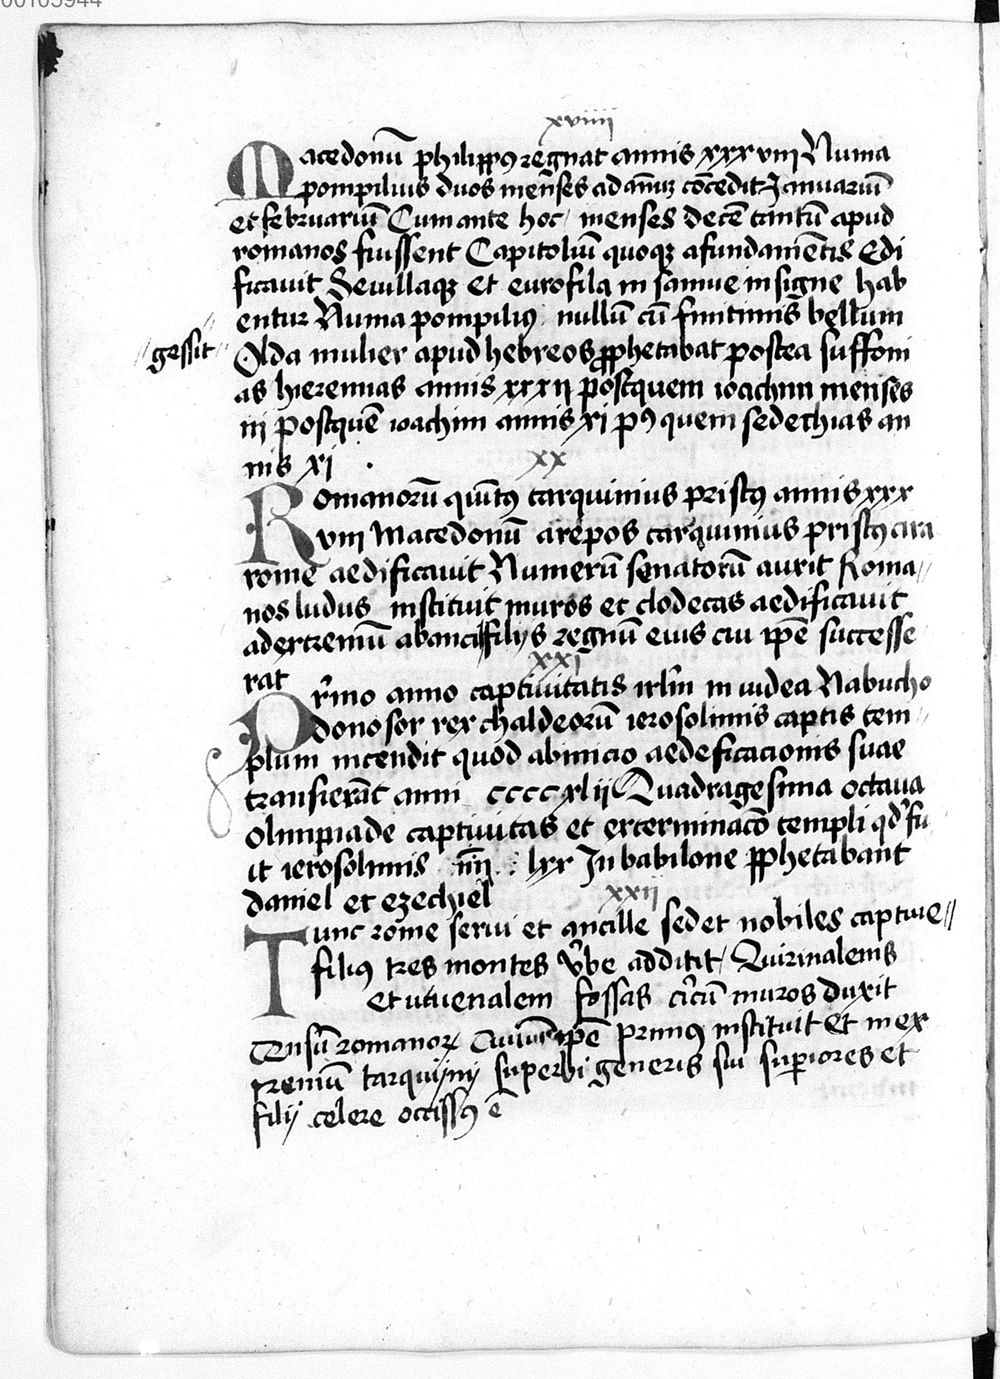 00105944
xviiii
Macedonū philippꝰ regnat annis xxxviii Numa
pompilius duos menses ad annū cōcedit Januariū
et februariū Cum ante hoc menses decē tantū apud
romanos fuissent Capitoliū quoqꝫ afundamētis Edi
ficauit Seuillaqꝫ et eurofila in samue insigne hab
entur Numa pompiliꝰ nullū cū finitimis bellum
gessit
Olda mulier apud hebreos ꝓphetabat postea suffoni
as hieremias annis xxxii postquem ioachim menses
iii postquē ioachim annis xi pꝰ quem sedechias an
nis xi
xx
Romanorū quītꝰ tarquinius priscꝰ annis xxx
viii Macedonū arepos tarquinius priscꝰ cira
rome aedificauit Numerū senatorū auxit Roma
nos ludus instituit muros et clodecas aedificauit
ad extremū ab anci filiis regnū eius cui ipē successe
rat
xxi
Prīmo anno captiuitatis irlm̄ in iudea Nabucho
donosor rex chaldeorū ierosolimis captis tem
plum incendit quod abinicio aedeficacionis suae
transierāt anni ccccxlii Quadragesima octaua
olimpiade captiuitas et exterminacō templi qd̓ fu
it ierosolimis iiii lxx In babilone ꝓphetabant
daniel et ezechiel
xxii
Tunc rome serui et ancille sedet nobiles capture
filiꝰ tres montes vr̄be additit Quirinalems
et utuenalem fossas cir̄cū muros duxit
Censū romanoꝝ ipē primꝰ instituit et in ex
tremū tarquinij superbi generis sui superiores et
filij celere occissꝰ ē